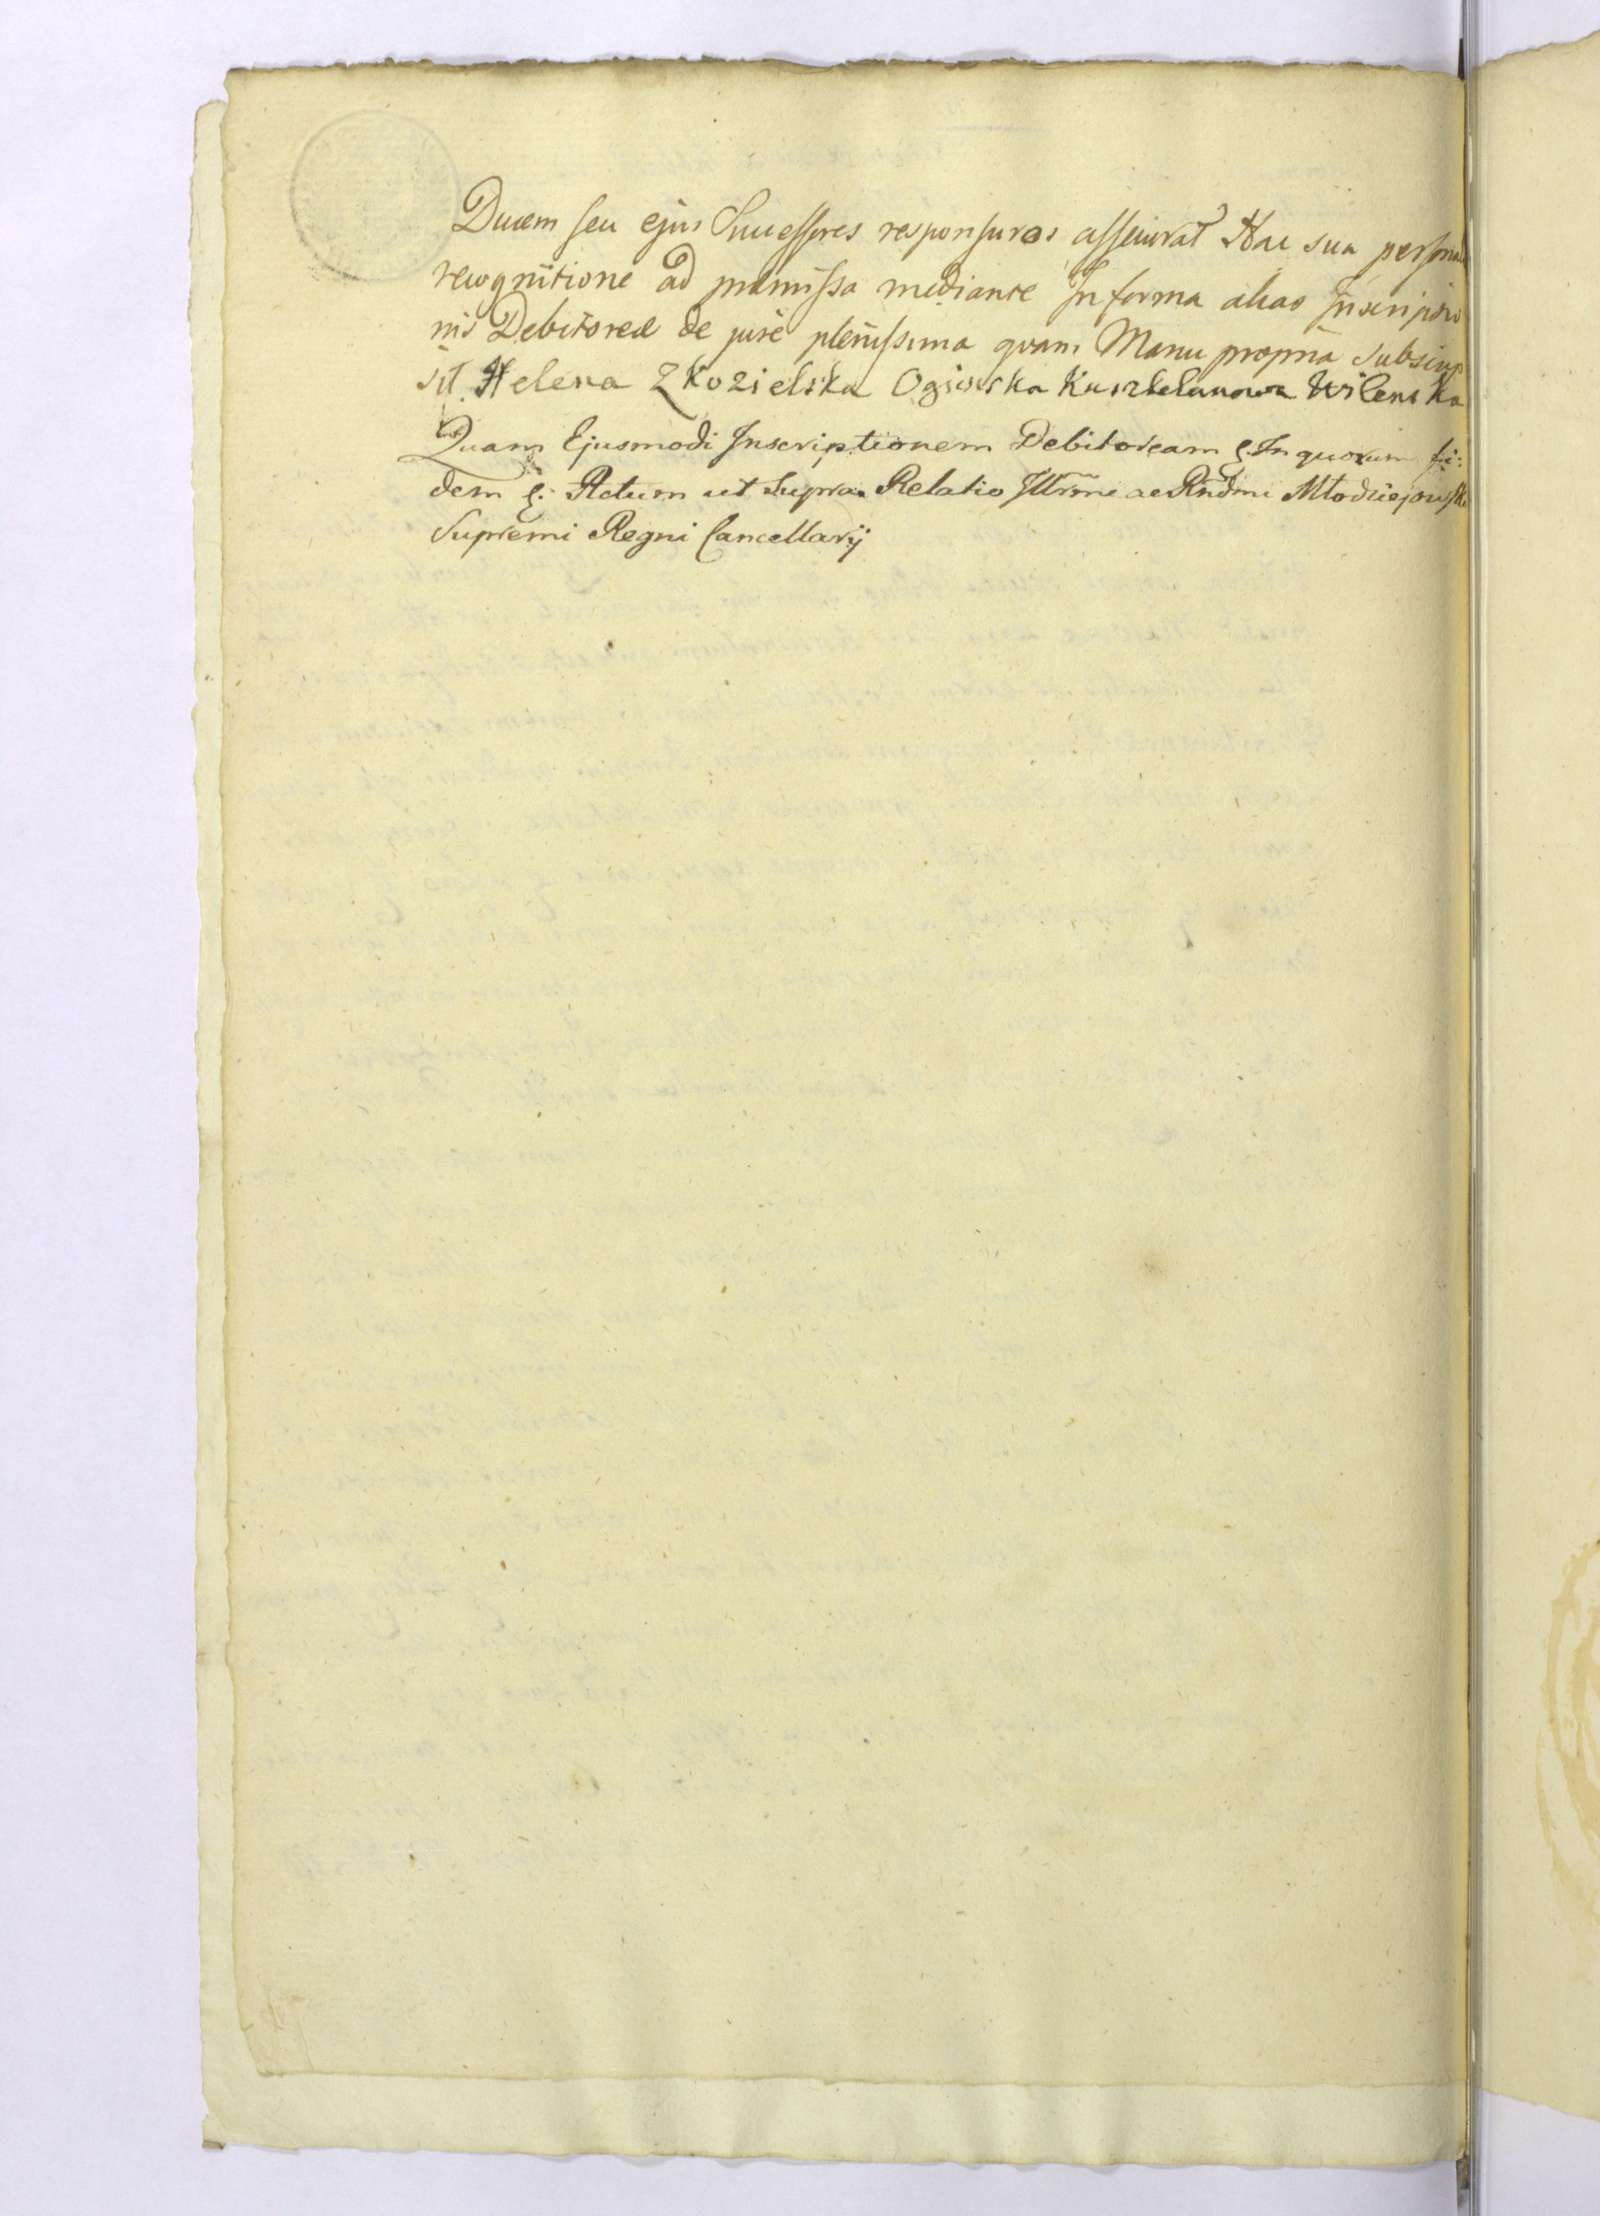 Ducem seu ejus Successores responsuros assecurat Hac sua persona
recognitione ad præmissa mediante In forma alias Inscriptio
nis Debitoreæ de jure plenissima qvam Manu propria subscrip
sit. Helena Zkozielska Oginska Kasztelanowa Wilenska
Quam Ejusmodi Inscriptionem Debitoream &. In quorum fi:
dem &. Actum ut Supra. Relatio Illr̃mi ac Rñdmi Młodziejowski
Supremi Regni Cancellarij